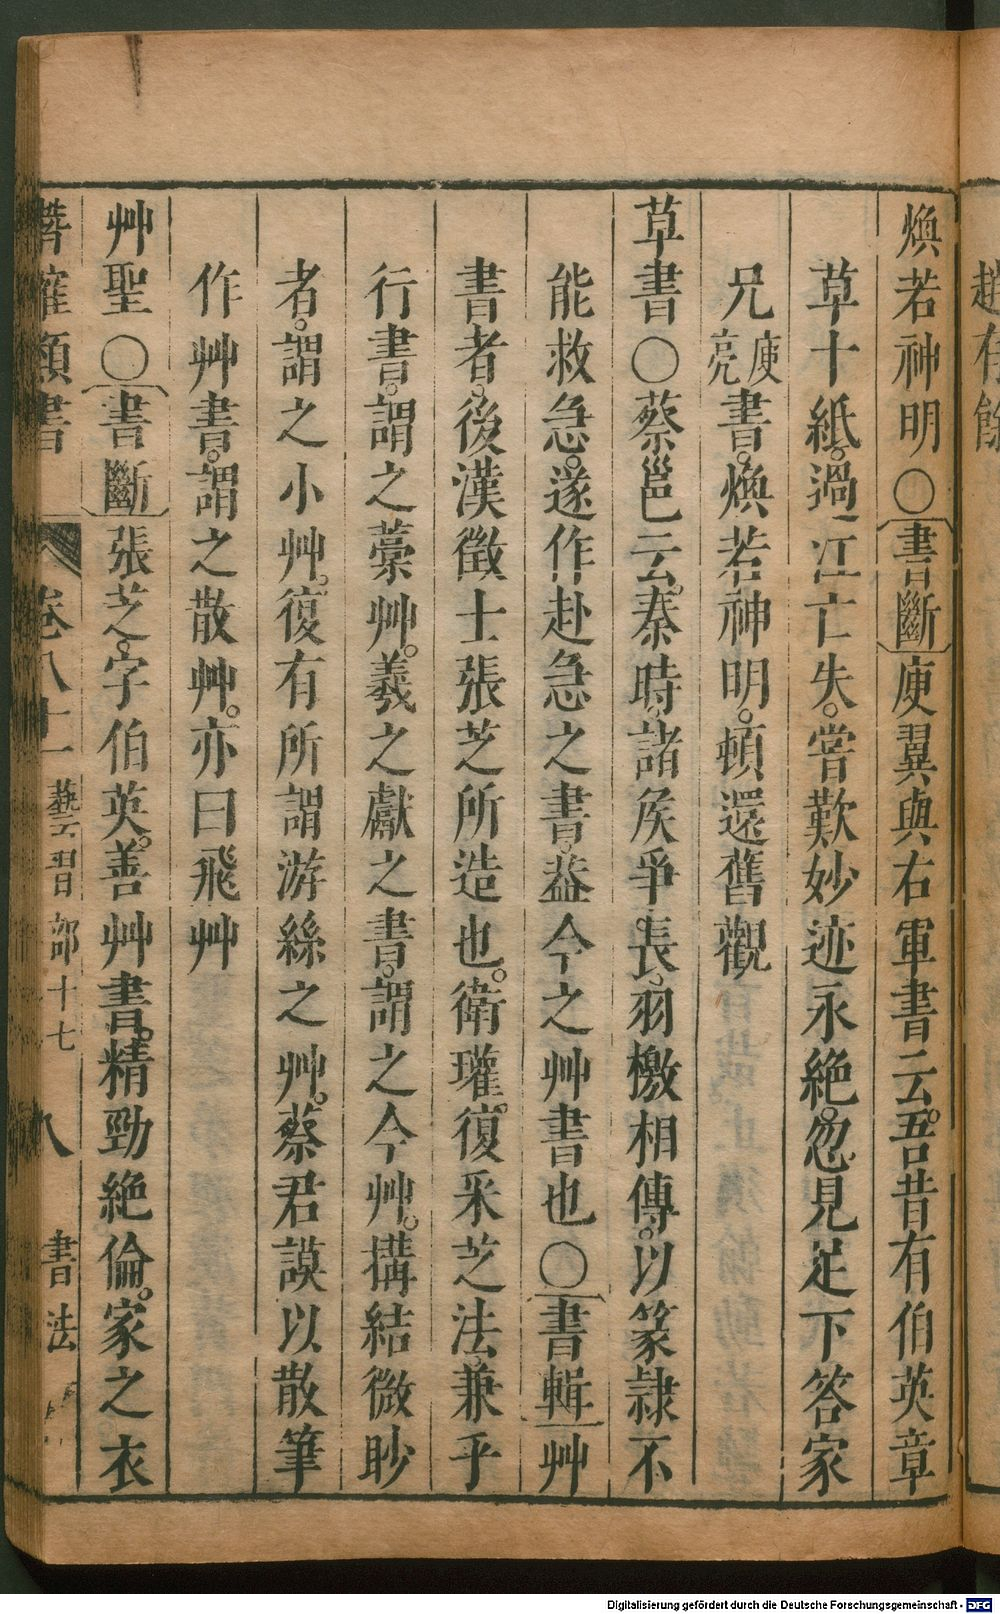 煥若神明〇書斷庾翼與右軍書云。吾昔有伯英章
草十紙。過江亡失。嘗歎妙迹永絶。忽見足下答家
兄庾亮書。煥若神明。頓還舊觀
草書〇蔡邕云。秦時。諸侯爭長。羽檄相傳。以篆隷不
能救急。遂作赴急之書。葢今之艸書也〇書輯艸
書者。後漢徵士張芝所造也。衛瓘。復采芝法兼乎
行書。謂之藁艸。羲之獻之書。謂之今艸。搆結微眇
者。謂之小艸。復有所謂游絲之艸。蔡君謨以散筆
作艸書。謂之散艸。亦曰飛艸
艸聖〇書斷張芝。字伯英。善艸書。精勁絶倫。家之衣
類書 卷八十一 藝習部十七 八 書法
Digitalisierung gefördert durch die Deutsche Forschungsgemeinschaft - DFG